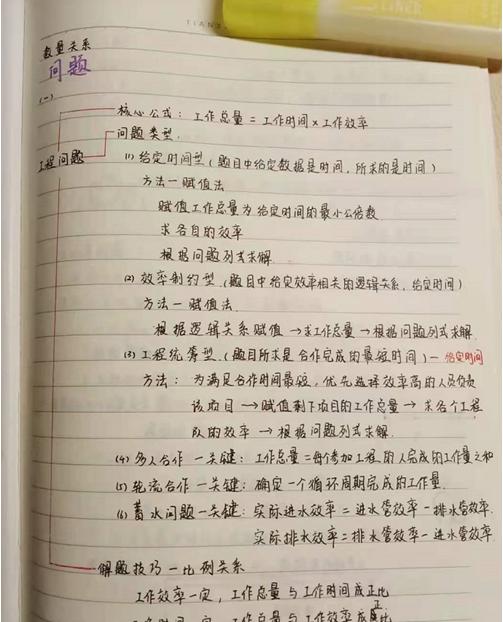 TIAN
数量关系
问题
(一)
核心公式：工作总量 = 工作时间 × 工作效率
问题类型.
工程问题
(1) 给定时间型 (题目中给定数据是时间，所求的是时间)
方法一赋值法
赋值工作总量为给定时间的最小公倍数
求各自的效率
根据问题列式求解.
(2) 效率制约型. (题目中给定效率相关的逻辑关系，给定时间)
方法一赋值法.
根据逻辑关系赋值 → 求工作总量 → 根据问题列式求解.
(3) 工程统筹型. (题目所求是合作完成的最短时间) — 给定时间
方法：为满足合作时间最短，优先选择效率高的人员负责
该项目 → 赋值剩下项目的工作总量 → 求各个工程
队的效率 → 根据问题列式求解.
(4) 多人合作一关键：工作总量 = 每个参加工程的人完成的工作量之和
(5) 轮流合作一关键：确定一个循环周期完成的工作量.
(6) 蓄水问题一关键：实际进水效率 = 进水管效率 - 排水管效率.
实际排水效率 = 排水管效率 - 进水管效率
解题技巧一比例关系
工作效率一定，工作总量与工作时间成正比
工作时间一定，工作总量与工作效率成正比